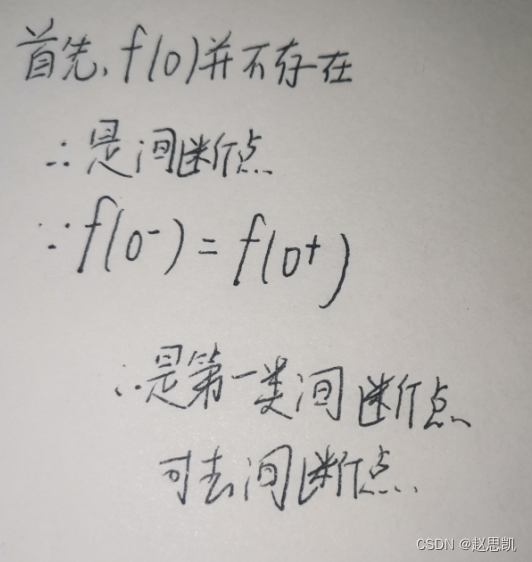 首先,f(0)并不存在
∴是间断点
∵f(0⁻)=f(0⁺)
∴是第一类间断点、
可去间断点.
CSDN @赵思凯